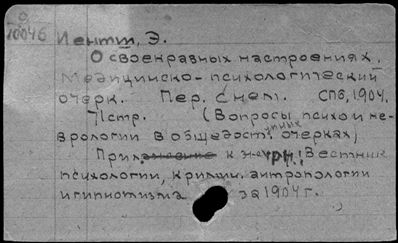 0
10046
Иентш, Э.
О своенравных настроениях.
Медицинско-психологический
очерк. Пер. с нем. СПб, 1904.
71 стр. (Вопросы психо и не-
врологии в общедоступных очерках)
Прил. к журн.: Вестник
психологии, кримин. антропологии
и гипнотизма за 1904 г.